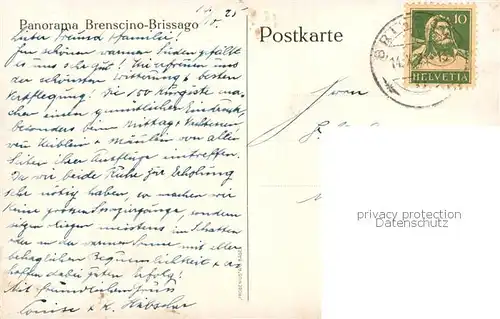 Panorama Brenscino-Brissago
Postkarte
10
HELVETIA
Lieber Freund & Familie!
Im schönen warmen Süden gefällt
es uns sehr gut! Wir erfreuen uns
der schönsten Witterung & besten
Verpflegung! Die 100 Kurgäste ma-
chen einen gemütlichen Eindruck,
besonders beim Mittag &
von allen
Seiten ihrer Ausflüge eintreffen.
Da wir beide Ruhe zur Erholung
sehr nötig haben, so machen wir
keine grossen Spaziergänge, sondern
sitzen liegen meistens im Schatten
der warmen Sonne mit aller
behaglichen Bequemlichkeit &
hoffen dabei guten Erfolg!
Mit freundlichem Gruss
Louise & K. Hübscher
Herrn
privacy protection
Datenschutz